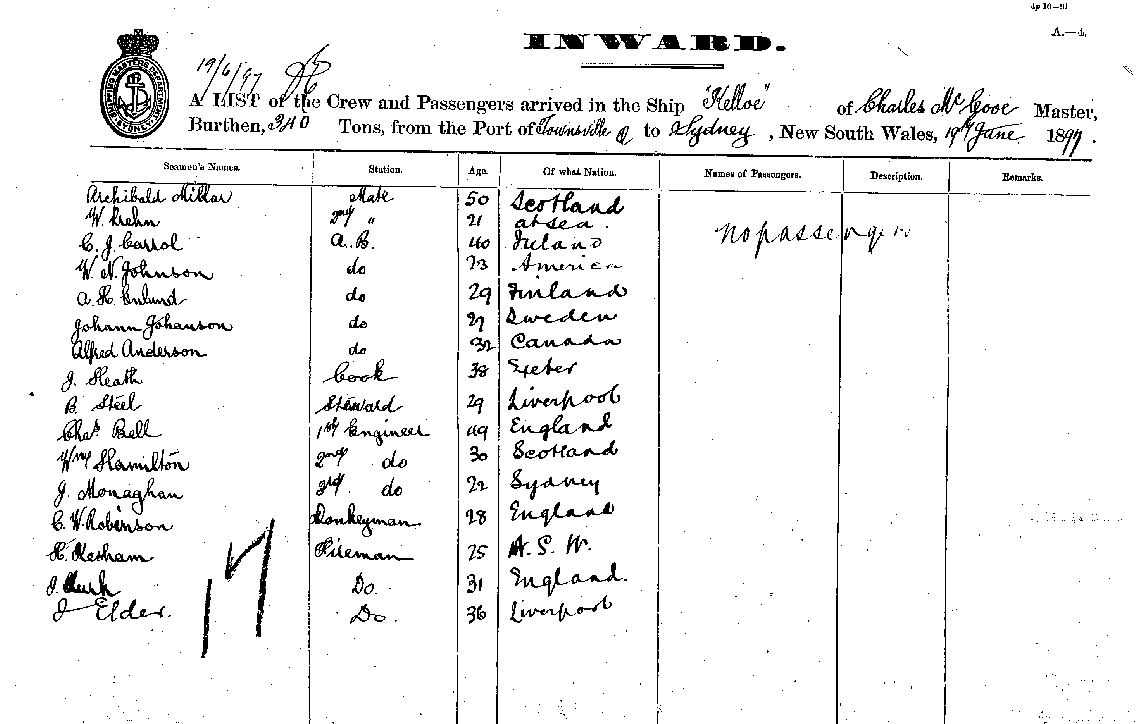 dp 10—91
A.—d.
INWARD.
19/6/97
A LIST of the Crew and Passengers arrived in the Ship "Kelloe" of Charles McGove Master,
Burthen, 340 Tons, from the Port of Townsville Q to Sydney, New South Wales, 19th June 1897.
Seamen's Names. Station. Age. Of what Nation. Names of Passengers. Description. Remarks.
Archibald Millar Mate 50 Scotland
W. Krehn 2nd " 21 at sea.
C. J. Carrol A.B. 40 Ireland no passengers
W. N. Johnson do 23 America
A. H. Enlund do 29 Finland
Johann Johanson do 27 Sweden
Alfred Anderson do 32 Canada
J. Heath Cook 38 Exeter
B. Steel Steward 29 Liverpool
Chas. Bell 1st Engineer 49 England
Wm Hamilton 2nd do 30 Scotland
J. Monaghan 3rd do 22 Sydney
C. W. Robinson Donkeyman 28 England
H. Kesham Fireman 25 N. S. W.
J. Do. 31 England.
J Elder. Do. 36 Liverpool
17